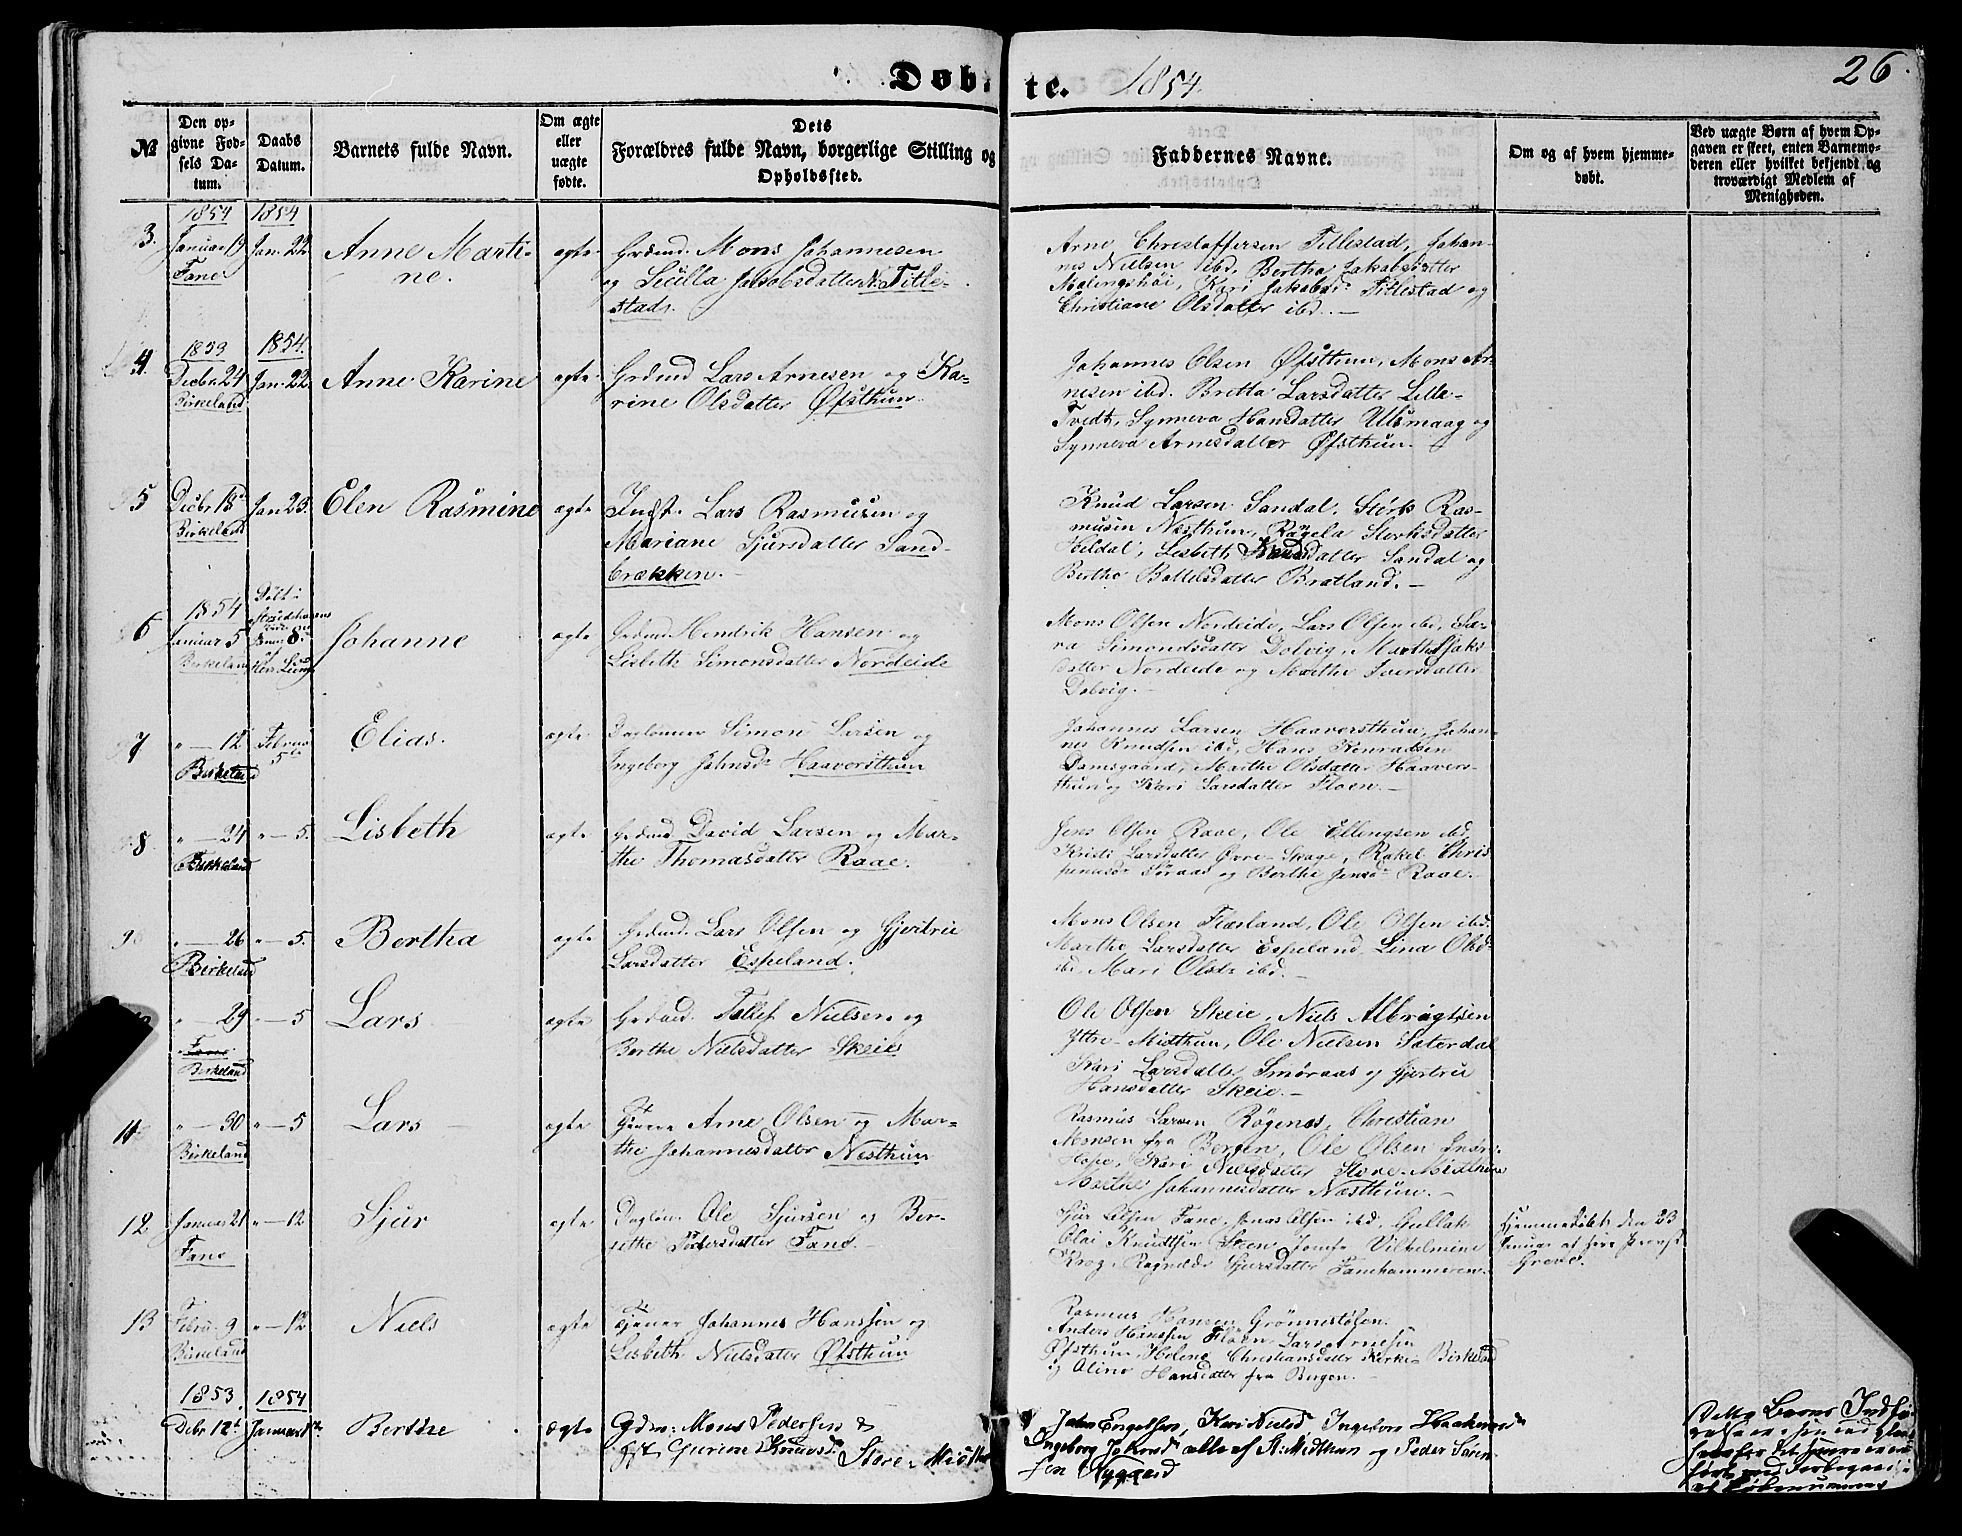 Døbte. 1854.
26.
№
Den op-
givne Fød-
sels Da-
tum.
Daabs
Datum.
Barnets fulde Navn.
Om ægte
eller
uægte
fødte.
Dets
Forældres fulde Navn, borgerlige Stilling og
Opholdssted.
Faddernes Navne.
Om og af hvem hjemme-
døbt.
Ved uægte Børn af hvem Op-
gaven er skeet, enten Barnemo-
deren eller hvilket bekjendt og
troværdigt Medlem af
Menigheden.
1854 1854
3. Januar 19 Jan. 22. Anne Marti-
ne. ægte
Fane
Grdmd. Mons Johannesen
og Sicilla Jakobsdatter N. Title-
stad.
Arne Christoffersen Titlestad, Johan-
nes Nielsen ibd, Bertha Jakobsdatter
Kari Jakobsd. Titlestad og
Christiane Olsdatter ibd. —
1853 1854.
4. Decbr. 24 Jan. 22. Anne Karine ægte
Birkeland
Grdmd Lars Arnesen og Ka-
rine Olsdatter Øfsthun.
Johannes Olsen Øfsthun, Mons Ar-
nesen ibd. Bretta Larsdatter Lille-
Tvedt, Synneva Hansdatter Ulsmaag og
Synneva Arnesdatter Øfsthun. —
5 Decbr 13 Jan 23. Elen Rasmine ægte
Birkeland
Indst. Lars Rasmusen og
Mariane Sjursdatter Sand-
brækken. —
Knud Larsen Sandal, Størk Ras-
musen Nesthun, Storksdatter
Heldal, Lisbeth Knudsdatter Sandal og
Bertha Bottelsdatter Bratland. —
1854
6 Januar 5 8. Johanne ægte
Birkeland
Grdmd. Hendrik Hansen og
Lisbeth Simonsdatter Nordeide
Mons Olsen Nordeide, Lars Olsen ibd, Sa-
ra Simonsdatter Dolvig, Martha
datter Nordeide og Marthe Iversdatter
Dolvig. —
7 " — 12 Februar
5te Elias. ægte
Birkeland
Daglønner Simon Larsen og
Ingeborg Johnsdr Haaversthun
Johannes Larsen Haaversthun, Johan-
nes Knudsen ibd, Hans Konradsen
Damsgaard, Marthe Olsdatter Haavers-
thun og Kari Larsdatter Floen. —
8. " — 24 " — 5. Lisbeth ægte
Birkeland
Grdmd David Larsen og Mar-
the Thomasdatter Raae.
Jens Olsen Raae, Ole Ellingsen ibd,
Kristi Larsdatter Øvre-Skage, Rakel Chris-
Søraas og Berthe Jensdr Raae. —
9 " — 26 " — 5. Bertha ægte
Birkeland
Grdmd. Lars Olsen og Gjertrue
Larsdatter Espeland.
Mons Olsen Flæsland, Ole Olsen ibd.
Martha Larsdatter Espeland, Lina Olsd.
ibd, Mari Olsdr ibd. —
" — 29 " — 5 Lars ægte
Fane
Birkeland
Grdmd. Tollef Nielsen og
Berthe Nielsdatter Skeie
Ole Olsen Skeie, Niels Albrigtsen
Yttre-Midthun, Ole Nielsen Saterdal
Kari Larsdatter Smøraas og Gjertrue
Hansdatter Skeie. —
11 " — 30 " — 5 Lars — ægte
Birkeland
Tjener Arne Olsen — og Mar-
the Johannesdatter Nesthun
Rasmus Larsen Røgenes, Christian
Monsen fra Bergen, Ole Olsen Indre-
Hope, Kari Nielsdatter Store-Midthun
Marthe Johannesdatter Næsthun. —
12 Januar 21 " — 12 Sjur ægte
Fane
Dagløn. Ole Sjursen og Ber-
rethe Pedersdatter Fane. —
Sjur Olsen Fane, Jonas Olsen ibd, Gullak
Olai Knudtsen Skeen, Jomfr Vilhelmine
Krog, Ragnilde Sjursdatter Fanehammeren.
Hjemmedøbt den 23
Januar af Herr Provst
Greve.
13 Febru. 9 " — 12 Niels ægte
Birkeland
Tjener Johannes Hanssen og
Lisbeth Nielsdatter Øfsthun
Rasmus Hansen Grønnestølen,
Anders Hanssen Floen, Lars Arnesen
Øfsthun, Helene Christiansdatter Kirke-Birkeland
og Aline Hansdatter fra Bergen. —
1853 1854
Debr 12te Januar Berthe ægte
Gdm. Mons Pedersen &
Gurine Knudsdr Store-Midthun
John Engelsen, Kari Nielsd Ingeborg
Ingeborg alle af St: Midthun og Peder Søren-
sen Nygaard
Dette Barns Indfø-